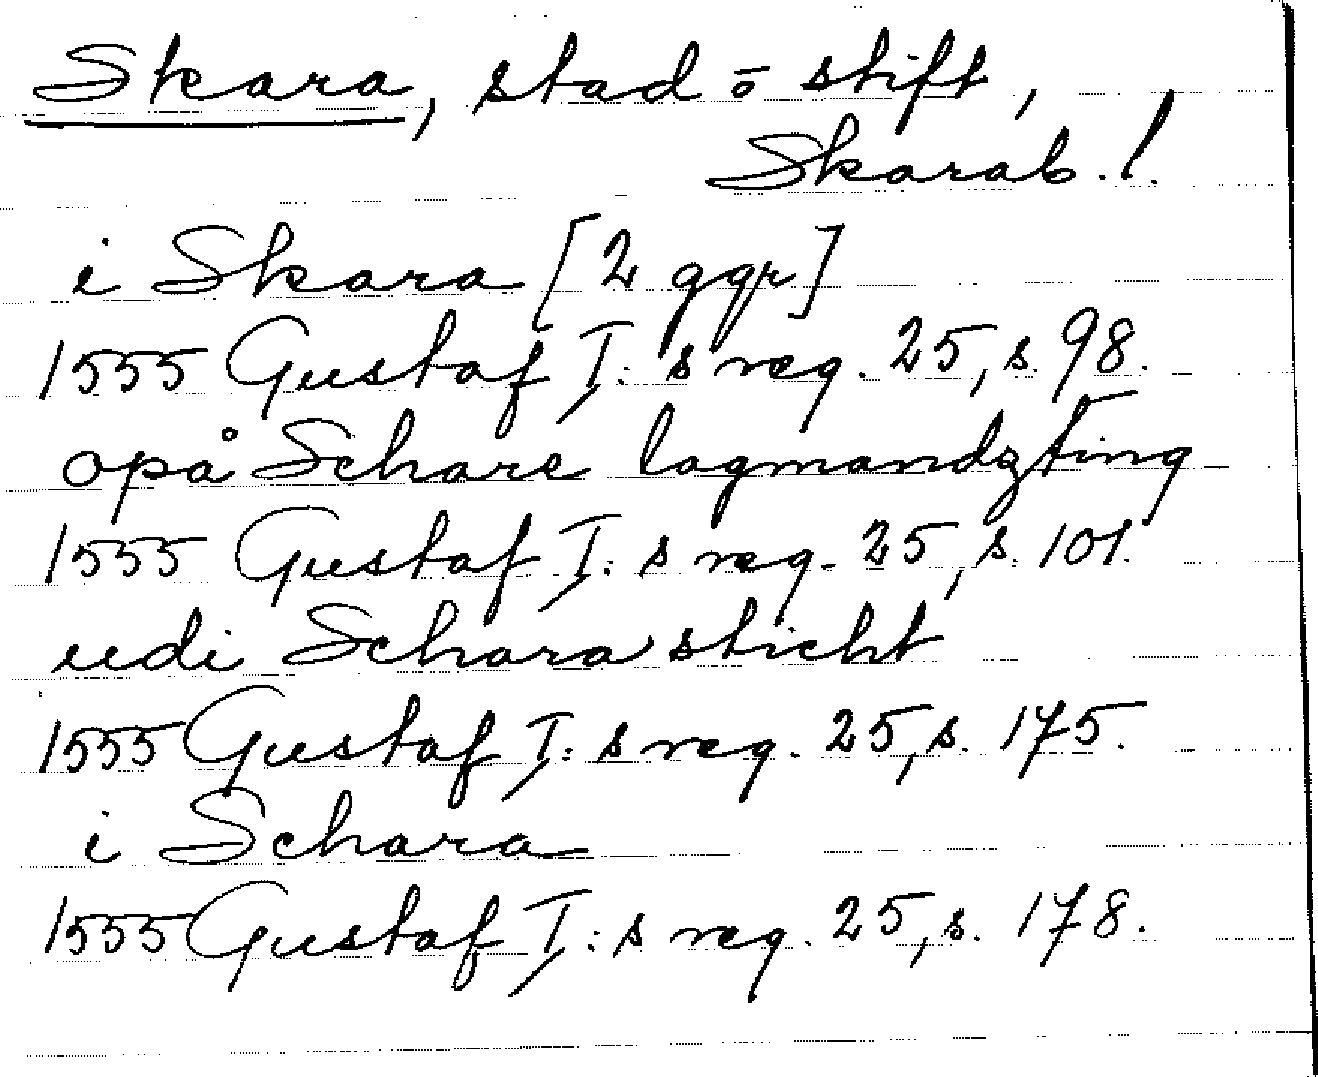 Skara, stad o stift,
Skarab. l.
i Skara [2 ggr]
1555 Gustaf I:s reg. 25, s. 98.
opå Schare lagmandzting
1555 Gustaf I:s reg. 25, s. 101.
udi Schara sticht
1555 Gustaf I:s reg. 25, s. 175.
i Schara
1555 Gustaf I:s reg. 25, s. 178.